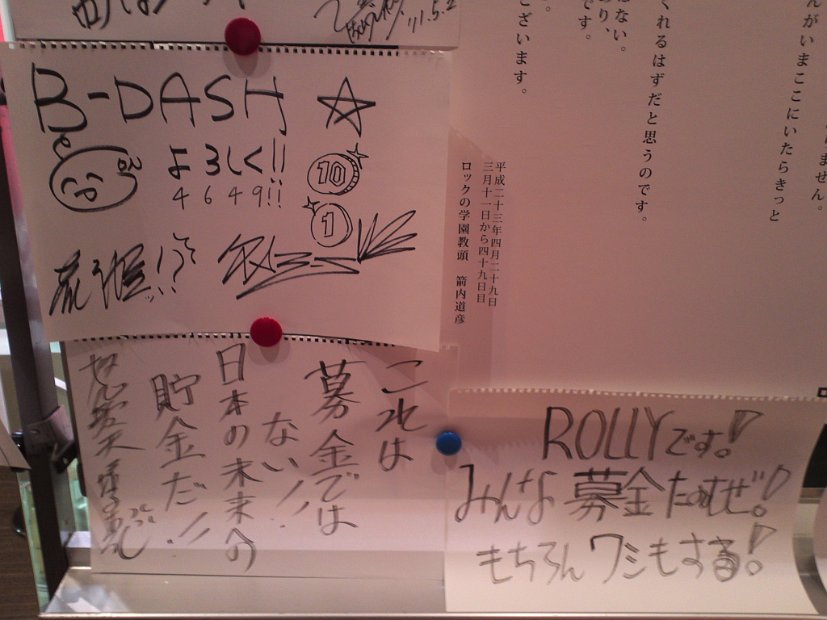 '11.5.2
B-DASH
よろしく!!
4649!!
10
1
これは
募金では
ない!!
日本の未来への
貯金だ!!
ROLLYです!
みんな募金たのむぜ!
もちろんワシもする!
んがいまここにいたらきっと
くれるはずだと思うのです。
はない。
です。
ございます。
平成二十三年四月二十九日
三月十一日から四十九日目
ロックの学園教頭　箭内道彦